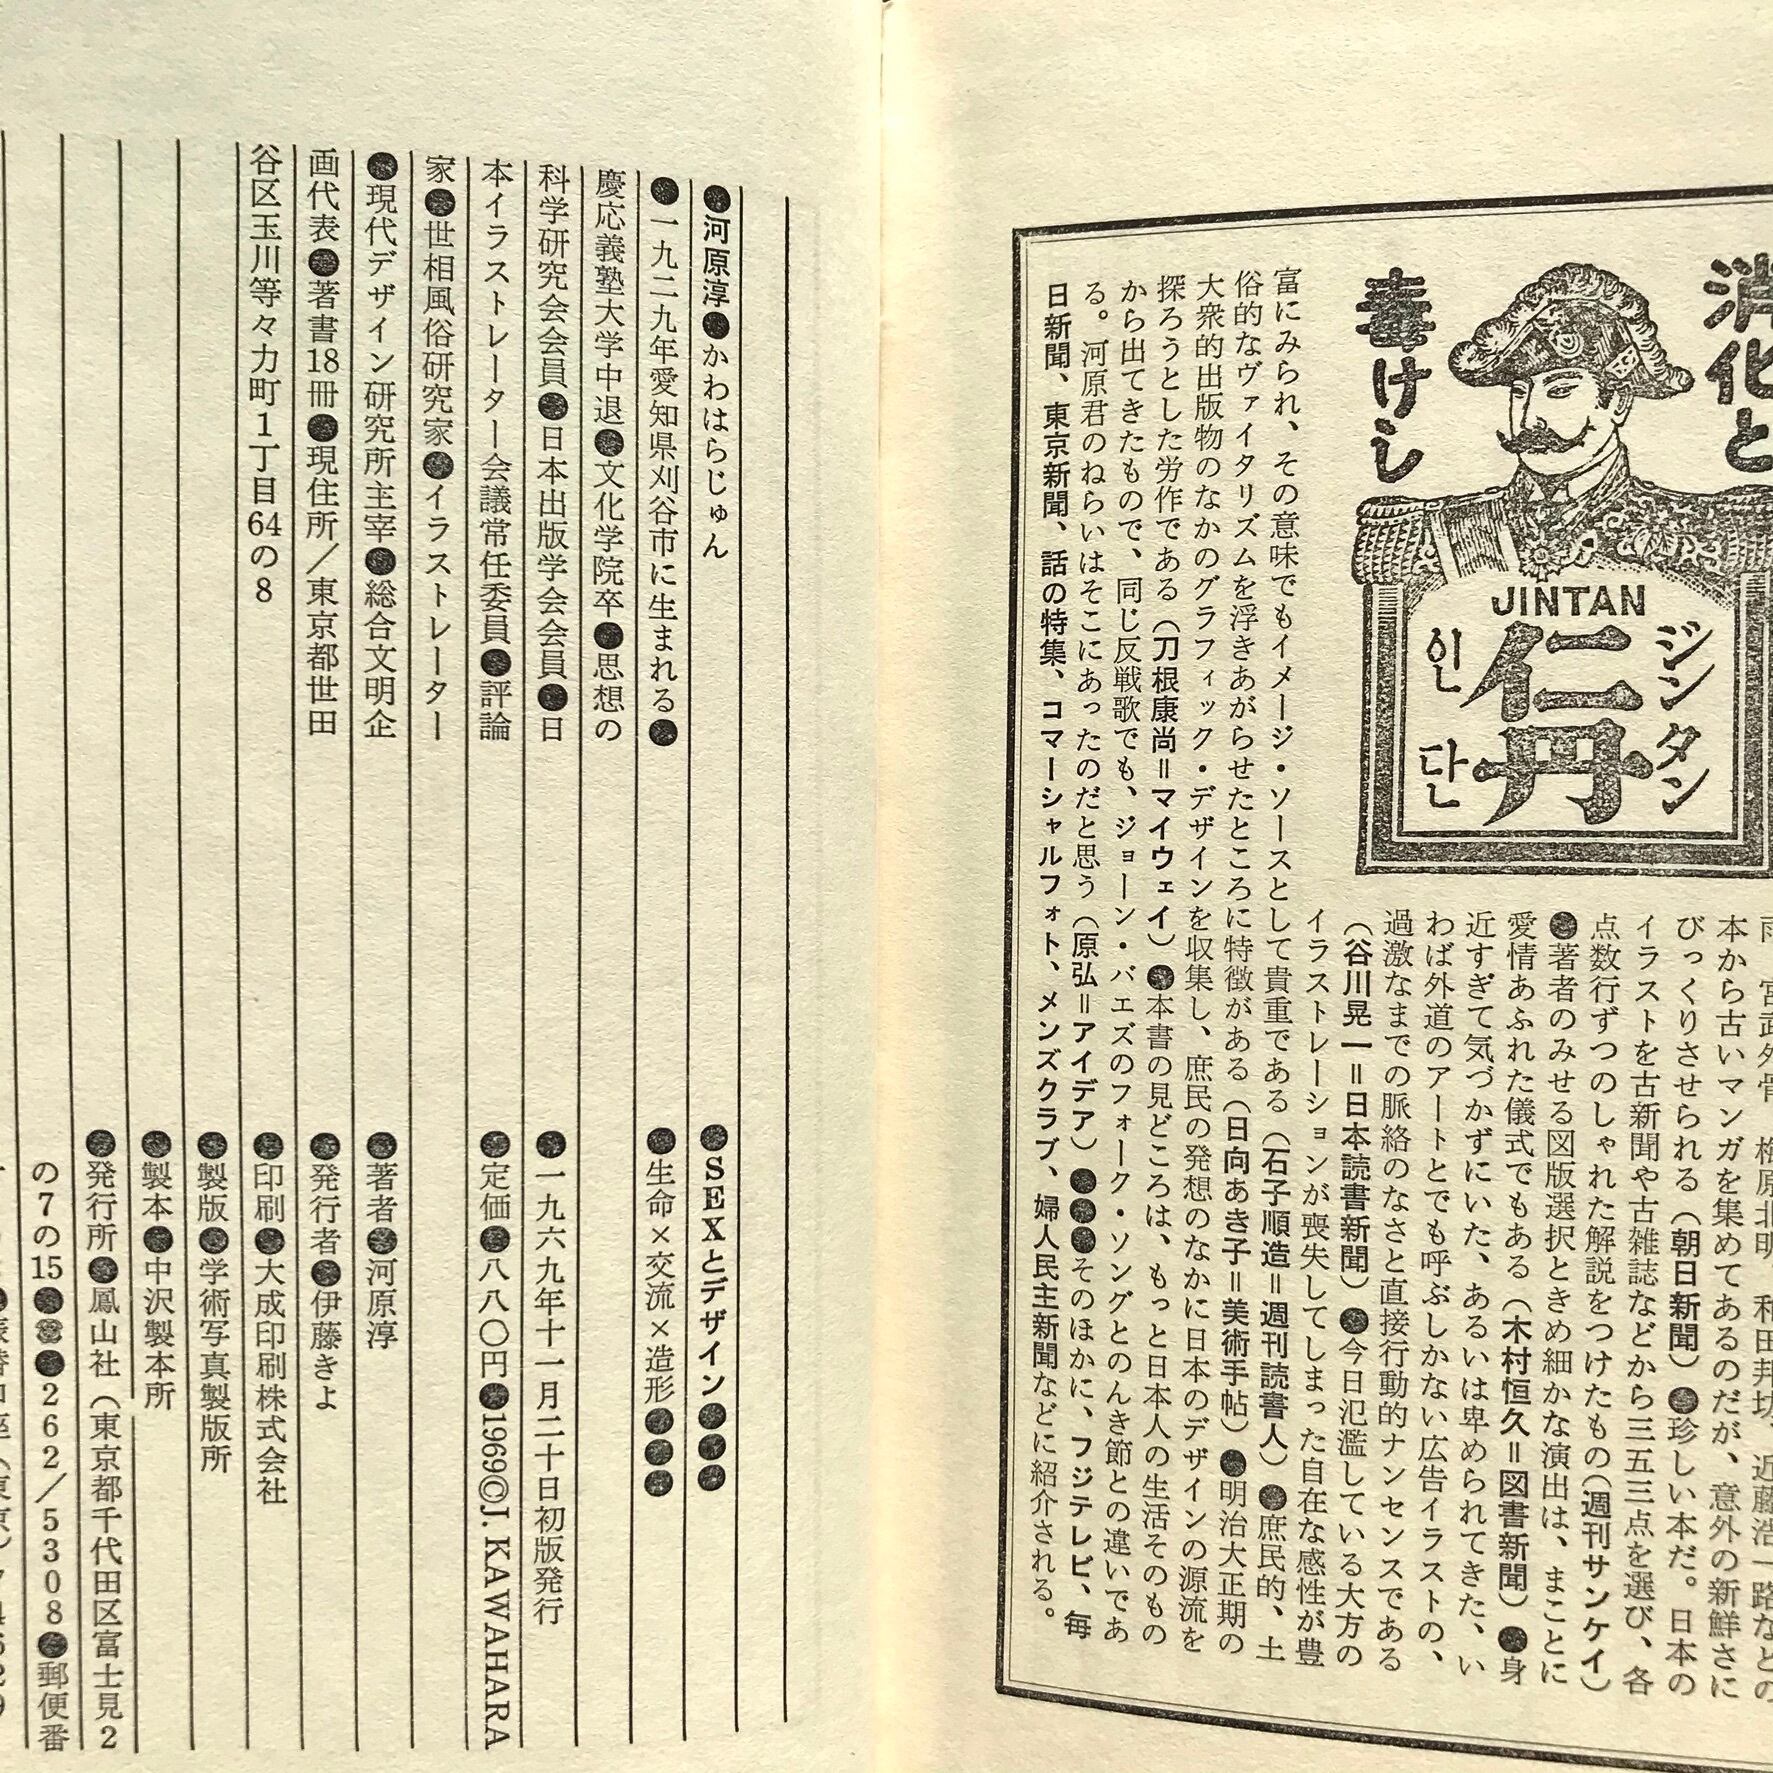 消化と
毒けし
JINTAN
ジンタン
仁丹
인단
本から古いマンガを集めてあるのだが、意外の新鮮さに
びっくりさせられる（朝日新聞）●珍しい本だ。日本の
イラストを古新聞や古雑誌などから三五三点を選び、各
点数行ずつのしゃれた解説をつけたもの（週刊サンケイ）
●著者のみせる図版選択ときめ細かな演出は、まことに
愛情あふれた儀式でもある（木村恒久＝図書新聞）●身
近すぎて気づかずにいた、あるいは卑められてきた、い
わば外道のアートとでも呼ぶしかない広告イラストの、
過激なまでの脈絡のなさと直接行動的ナンセンスである
（谷川晃一＝日本読書新聞）●今日氾濫している大方の
イラストレーションが喪失してしまった自在な感性が豊
富にみられ、その意味でもイメージ・ソースとして貴重である（石子順造＝週刊読書人）●庶民的、土
俗的なヴァイタリズムを浮きあがらせたところに特徴がある（日向あき子＝美術手帖）●明治大正期の
大衆的出版物のなかのグラフィック・デザインを収集し、庶民の発想のなかに日本のデザインの源流を
探ろうとした労作である（刀根康尚＝マイウェイ）●本書の見どころは、もっと日本人の生活そのもの
から出てきたもので、同じ反戦歌でも、ジョーン・バエズのフォーク・ソングとのんき節との違いであ
る。河原君のねらいはそこにあったのだと思う（原弘＝アイデア）●●●そのほかに、フジテレビ、毎
日新聞、東京新聞、話の特集、コマーシャルフォト、メンズクラブ、婦人民主新聞などに紹介される。
●河原淳●かわはらじゅん
●一九二九年愛知県刈谷市に生まれる●
慶応義塾大学中退●文化学院卒●思想の
科学研究会会員●日本出版学会会員●日
本イラストレーター会議常任委員●評論
家●世相風俗研究家●イラストレーター
●現代デザイン研究所主宰●総合文明企
画代表●著書18冊●現住所／東京都世田
谷区玉川等々力町1丁目64の8
●SEXとデザイン●●●
●生命×交流×造形●●●
●一九六九年十一月二十日初版発行
●定価●八八〇円●1969©J. KAWAHARA
●著者●河原淳
●発行者●伊藤きよ
●印刷●大成印刷株式会社
●製版●学術写真製版所
●製本●中沢製本所
●発行所●鳳山社（東京都千代田区富士見2
の7の15●☎●262／5308●郵便番